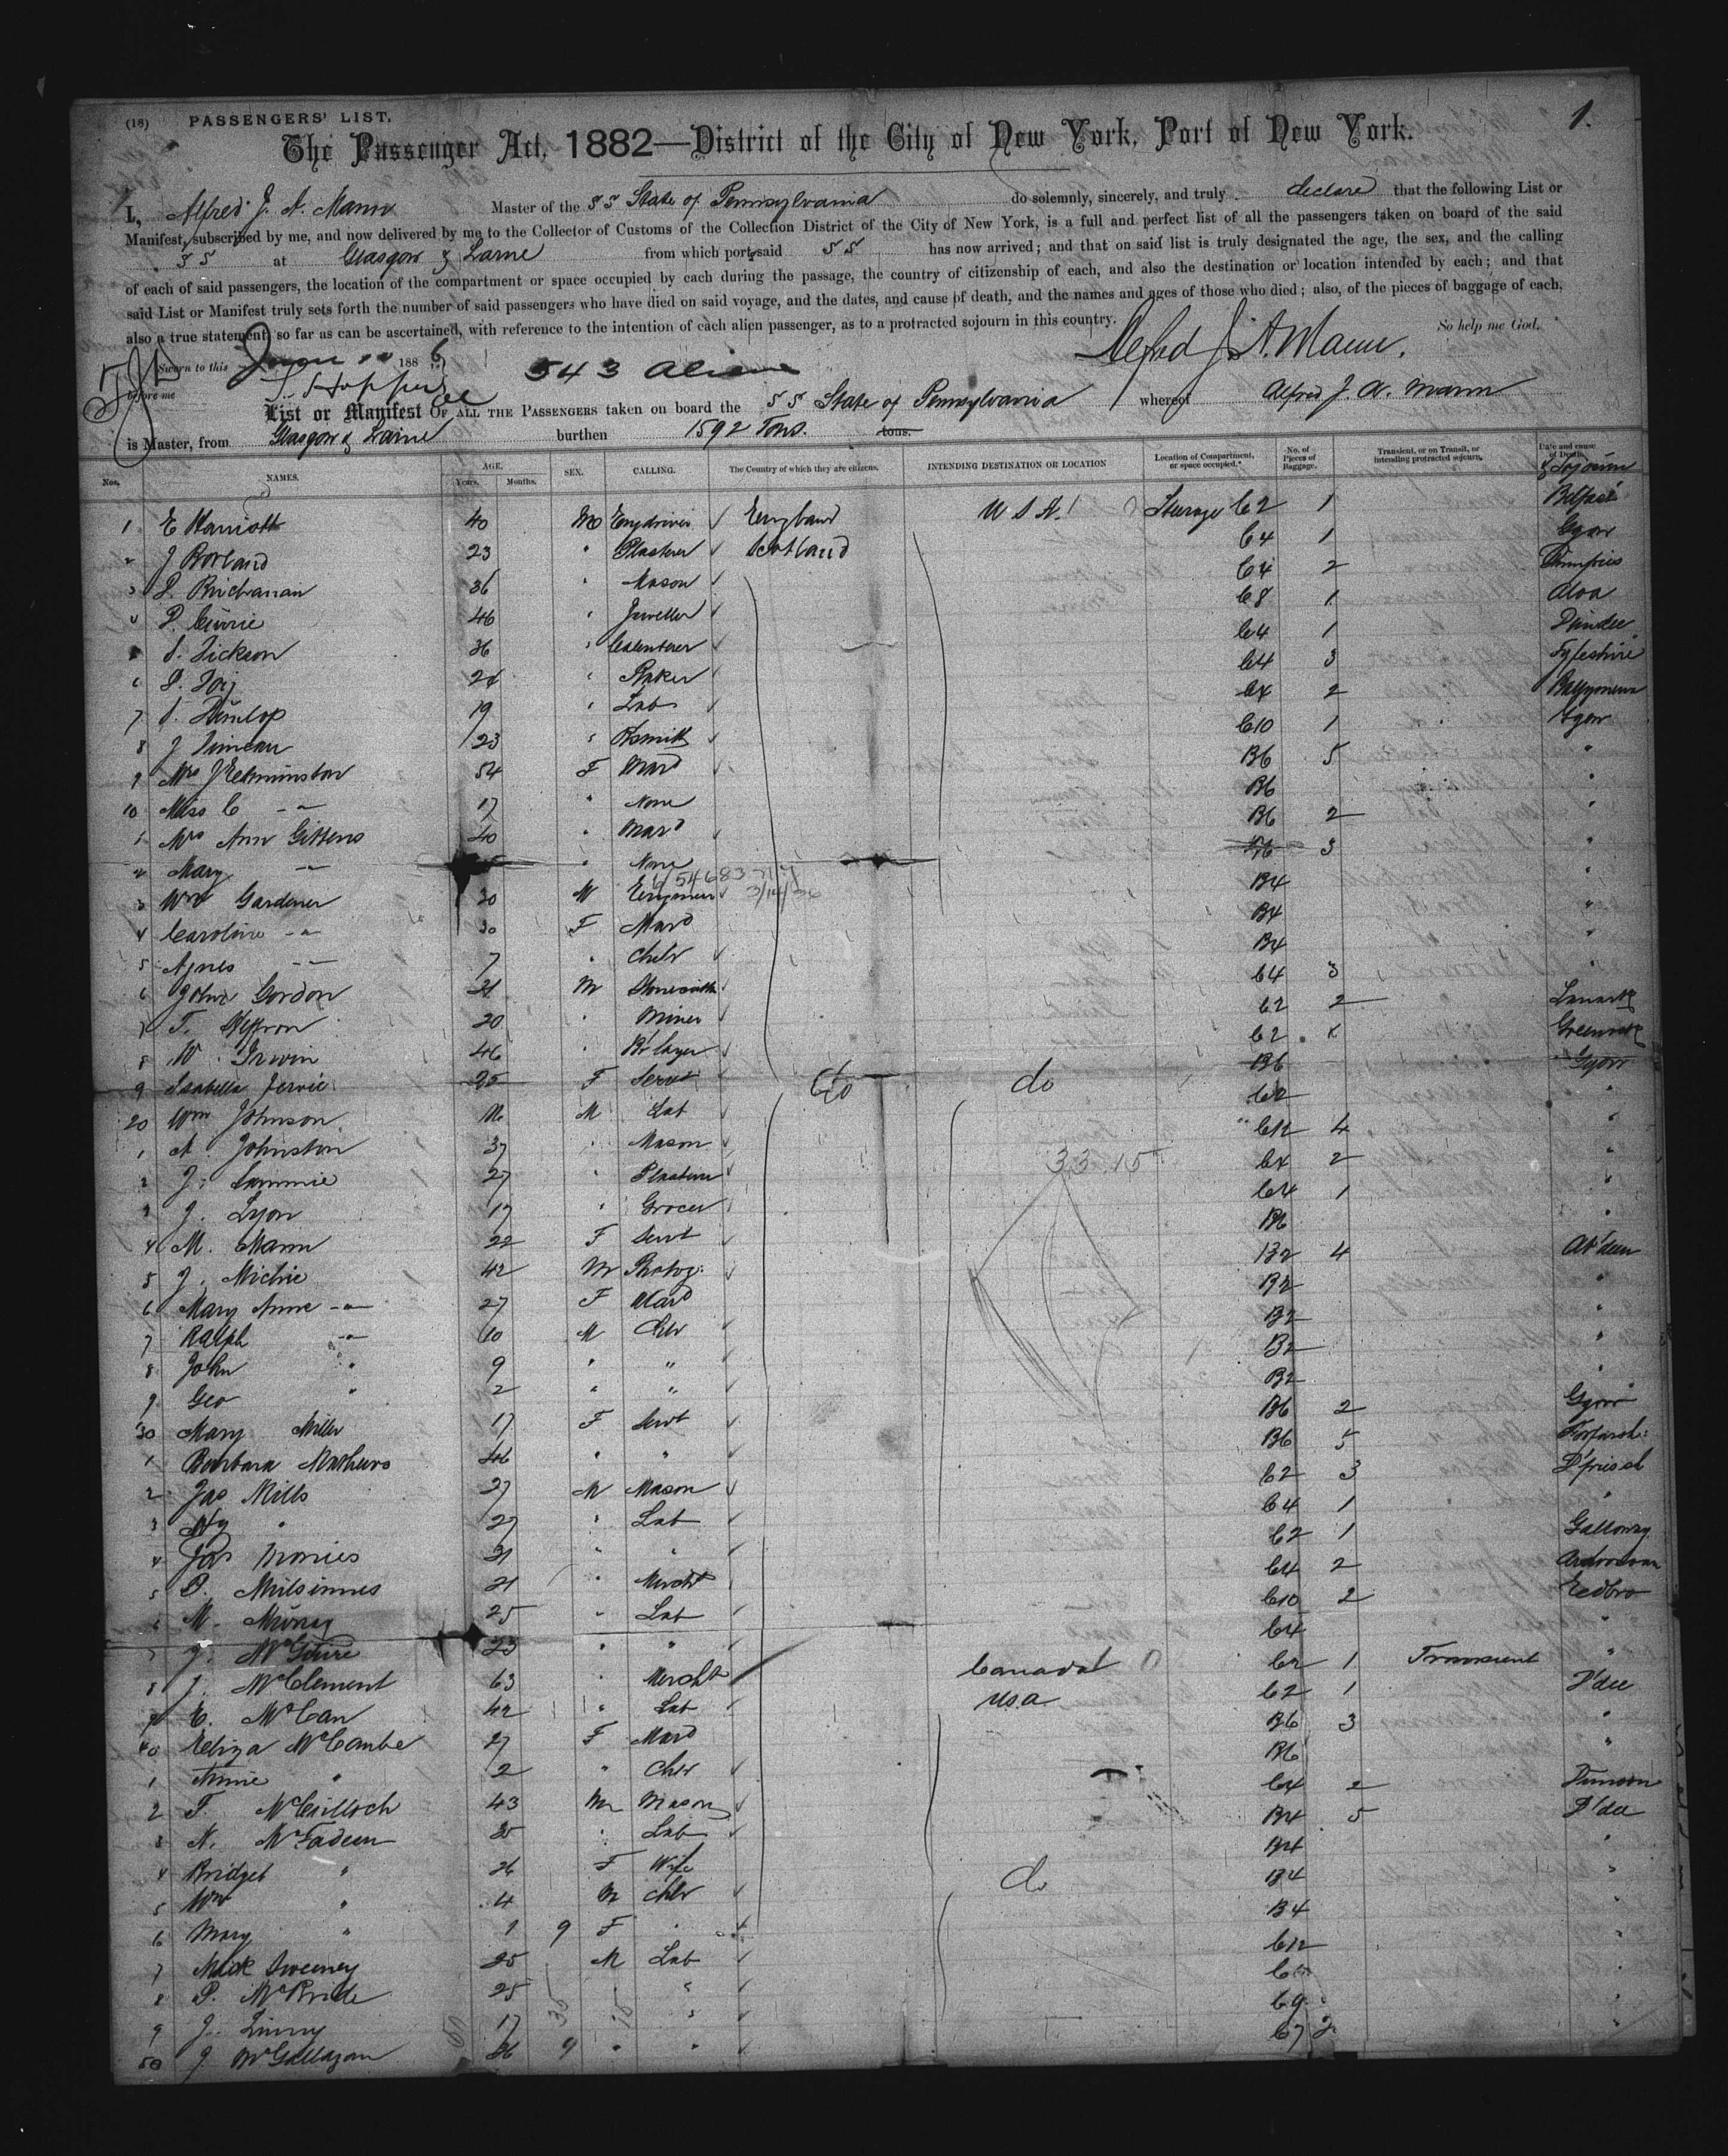 (16) PASSENGERS' LIST. 1.
The Passenger Act, 1882—District of the City of New York, Port of New York.
I, Alfred J. A. Mann Master of the SS State of Pennsylvania do solemnly, sincerely, and truly declare that the following List or
Manifest, subscribed by me, and now delivered by me to the Collector of Customs of the Collection District of the City of New York, is a full and perfect list of all the passengers taken on board of the said
SS at Glasgow & Larne from which port said SS has now arrived; and that on said list is truly designated the age, the sex, and the calling
of each of said passengers, the location of the compartment or space occupied by each during the passage, the country of citizenship of each, and also the destination or location intended by each; and that
said List or Manifest truly sets forth the number of said passengers who have died on said voyage, and the dates, and cause of death, and the names and ages of those who died; also, of the pieces of baggage of each,
also a true statement, so far as can be ascertained, with reference to the intention of each alien passenger, as to a protracted sojourn in this country. So help me God.
Sworn to this June 10 1886 Alfred J. A. Mann.
before me 543 Alien
List or Manifest OF ALL THE PASSENGERS taken on board the SS State of Pennsylvania whereof Alfred J. A. Mann
is Master, from Glasgow & Larne burthen 1592 Tons. tons.
Nos. NAMES. AGE. Years. Months. SEX. CALLING. The Country of which they are citizens. INTENDING DESTINATION OR LOCATION Location of Compartment, or space occupied.* No. of Pieces of Baggage. Transient, or on Transit, or intending protracted sojourn. Date and cause of Death. & Sojourn
1 E 40 M England U S A. Steerage C2 1 Belfast
2 J Borland 23 " Plasterer Scotland C4 1 Ggow
3 P. Buchanan 36 " Mason C4 2 Dumfries
4 P. Currie 46 " Jeweller C8 1 Aloa
5 Dickson 36 " C4 1 Dundee
6 " Baker C4 3 Fyfeshire
7 Dunlop 19 " Lab C4 2 Ballymena
8 J Duncan 23 " Bsmith C10 1 Ggow
9 Mrs J Edminston 54 F Mard B6 5 "
10 Miss C " 17 " None B6 "
1 Mrs Ann Gittens 40 " Mard B6 2 "
2 Mary " " None B6 3 "
3 Wm Gardener 30 M B4 "
4 Caroline " 30 F Mard B4 "
5 Agnes " 7 " Child B4 "
6 John Gordon 21 M C4 3 "
7 T. Heffron 20 " Miner C2 2 Lanark
8 W. Irwin 46 " Br layer C2 Greenock
9 Isabella Jervie 25 F Servt do do B6 Ggow
20 Wm Johnson M Lab C12 "
1 A. Johnston 37 " Mason C12 4 "
2 J. Lammie 27 " Plasterer C4 2 "
3 J. Lyon 17 " Grocer C4 1 "
4 M. Mann 22 F Servt B6 "
5 J. Michie 42 M Photog. B2 4 Ab'deen
6 Mary Anne " 27 F Mard B2 "
7 Ralph " 10 M Chld B2 "
8 John " 9 " " B2 "
9 Geo " 2 " " B2 "
30 Mary Miller 17 F Servt B6 2 Ggow
1 Barbara Mathews 46 " " B6 5 Forfarsh:
2 Jas Mills 27 M Mason C2 3 D'friessh
3 Hy " 27 " Lab C4 1 "
4 Jas Monies 21 " " C2 1 Galloway
5 21 " Mercht C4 2 Ardrossan
6 M. Murray 25 " Lab C10 2 Edbro
7 J. McGuire 23 " " C4 "
8 J. McClement 63 " Mercht Canada C2 1 Transient "
9 E. McCan 42 " Lab USA C2 1 D'dee
40 Eliza McCambe 27 F Mard B6 3 "
1 Annie " 2 " Chld B6 "
2 T. McCulloch 43 M Mason C4 2 Dunoon
3 N. McFadeen 35 " Lab B4 5 D'dee
4 Bridget " 26 F Wife B4 "
5 Wm " 4 M Chld do B4 "
6 Mary " 1 9 F " B4 "
7 Mick Sweeney 25 M Lab C12 "
8 P. McBride 25 " " "
9 J. 17 " " C9 "
50 J McGallagan 26 " " C7 2 "
33 15